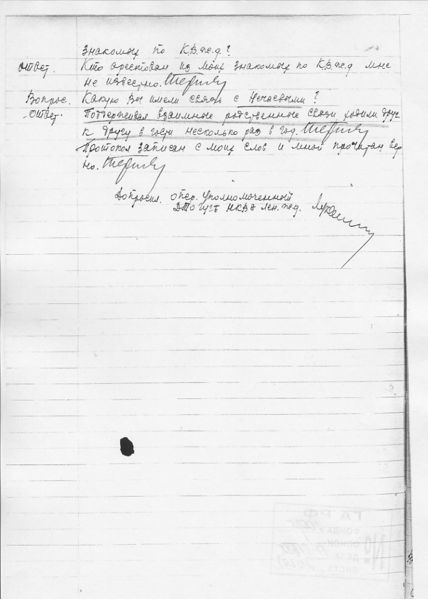 знакомых по К.В.ж.д?
Ответ. Кто арестован из моих знакомых по К.В.ж.д мне
не известно.
Вопрос. Какую Вы имели связь с Нечаевыми?
Ответ. Поддерживал взаимные родственные связи ходили друг
к другу в гости несколько раз в год.
Протокол записан с моих слов и мной прочитан вер
но.
Допросил. Опер. Уполномоченный
НКВД Лен.